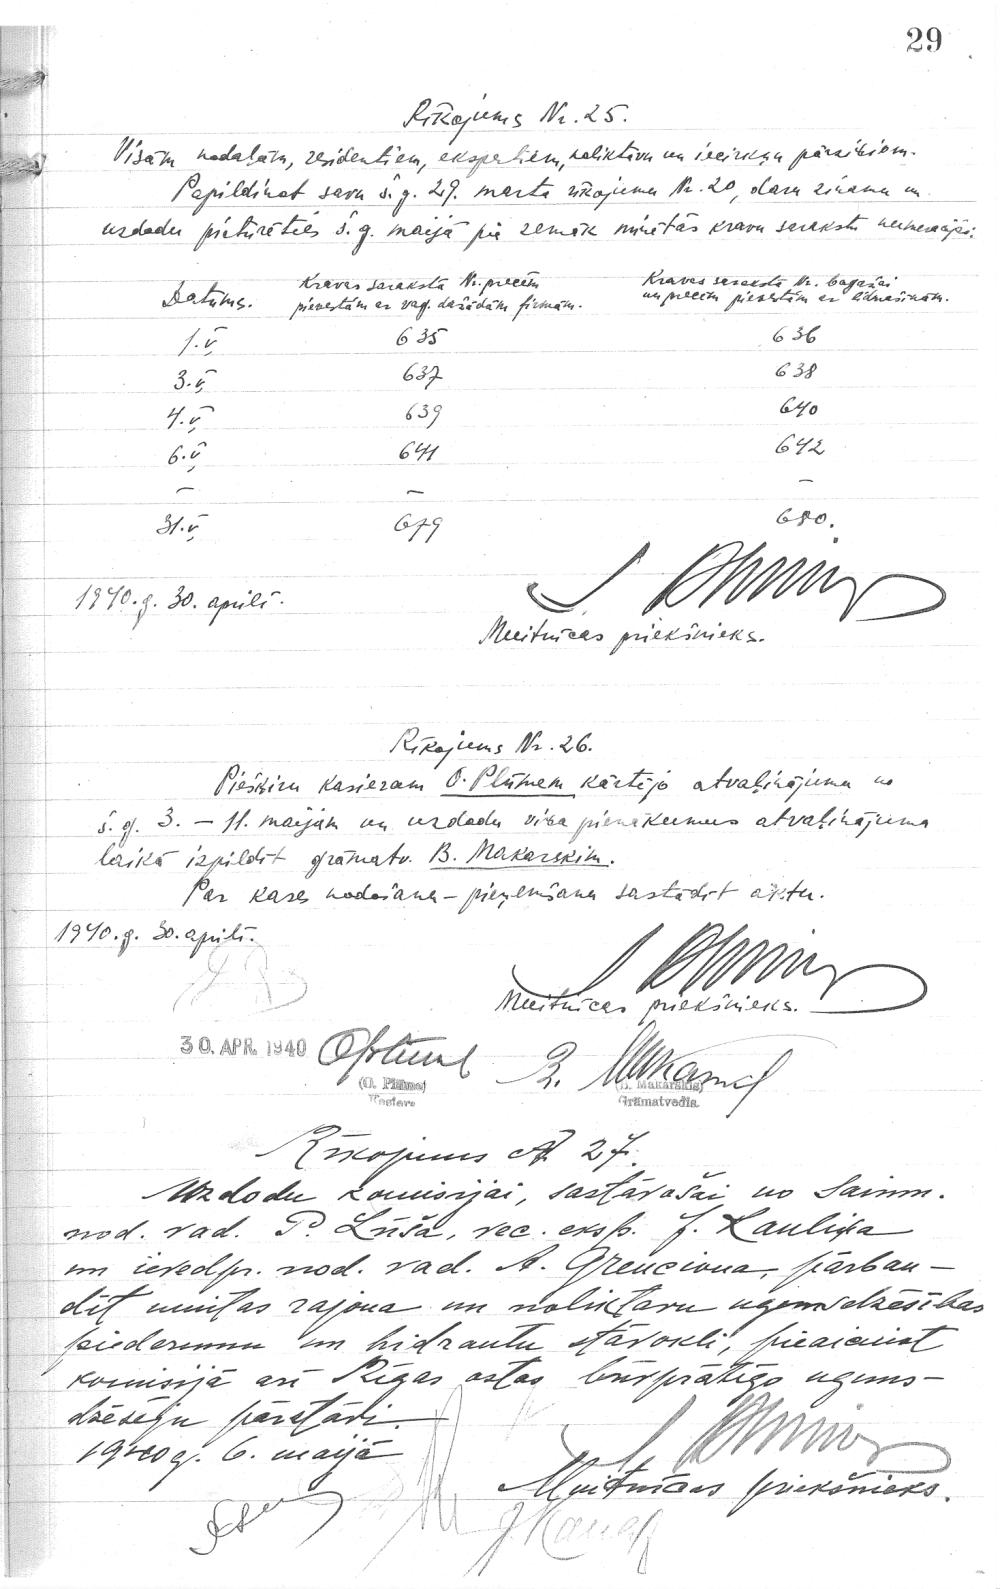 29
Rīkojums Nr. 25.
Visām nodaļām, rezidentiem, ekspertiem, noliktavu un iecirkņu pārziņiem.
Papildinot savu š.g. 29. marta rīkojumu Nr. 20, daru zināmu un
uzdodu pieturēties š.g. maijā pie zemāk minētās kravu sarakstu numerācijas:
Datums. Kravas saraksta Nr. precēm pievestām ar vag. dažādām firmām. Kravas saraksta Nr. bagāžai un precēm pievestām ar lidmašīnām.
1.V 635 636
3.V 637 638
4.V 639 640
6.V 641 642
– – –
31.V 679 680.
1940.g. 30. aprīlī.
Muitnīcas priekšnieks.
Rīkojums Nr. 26.
Piešķiru kasieram O. Plūmem kārtējo atvaļinājumu no
š.g. 3. – 11. maijam un uzdodu viņa pienākumus atvaļinājuma
laikā izpildīt grāmatv. B. Makarskim.
Par kases nodošanu – pieņemšanu sastādīt aktu.
1940.g. 30. aprīlī.
Muitnīcas priekšnieks.
30. APR. 1940
(O. Plūme) (B. Makarskis)
Kasieris Grāmatvedis
Rīkojums № 27.
Uzdodu komisijai, sastāvošai no Saimn.
nod. vad. P. Lūša, vec. eksp. J. Kauliņa
un ieredpr. nod. vad. A. Grenciona, pārbau-
dīt muitas rajona un noliktavu ugunsdzēsības
piederumu un hidrantu stāvokli, pieaicinot
komisijā arī Rīgas ostas brīvprātīgo uguns-
dzēsēju pārstāvi.
1940 g. 6. maijā
Muitnīcas priekšnieks.